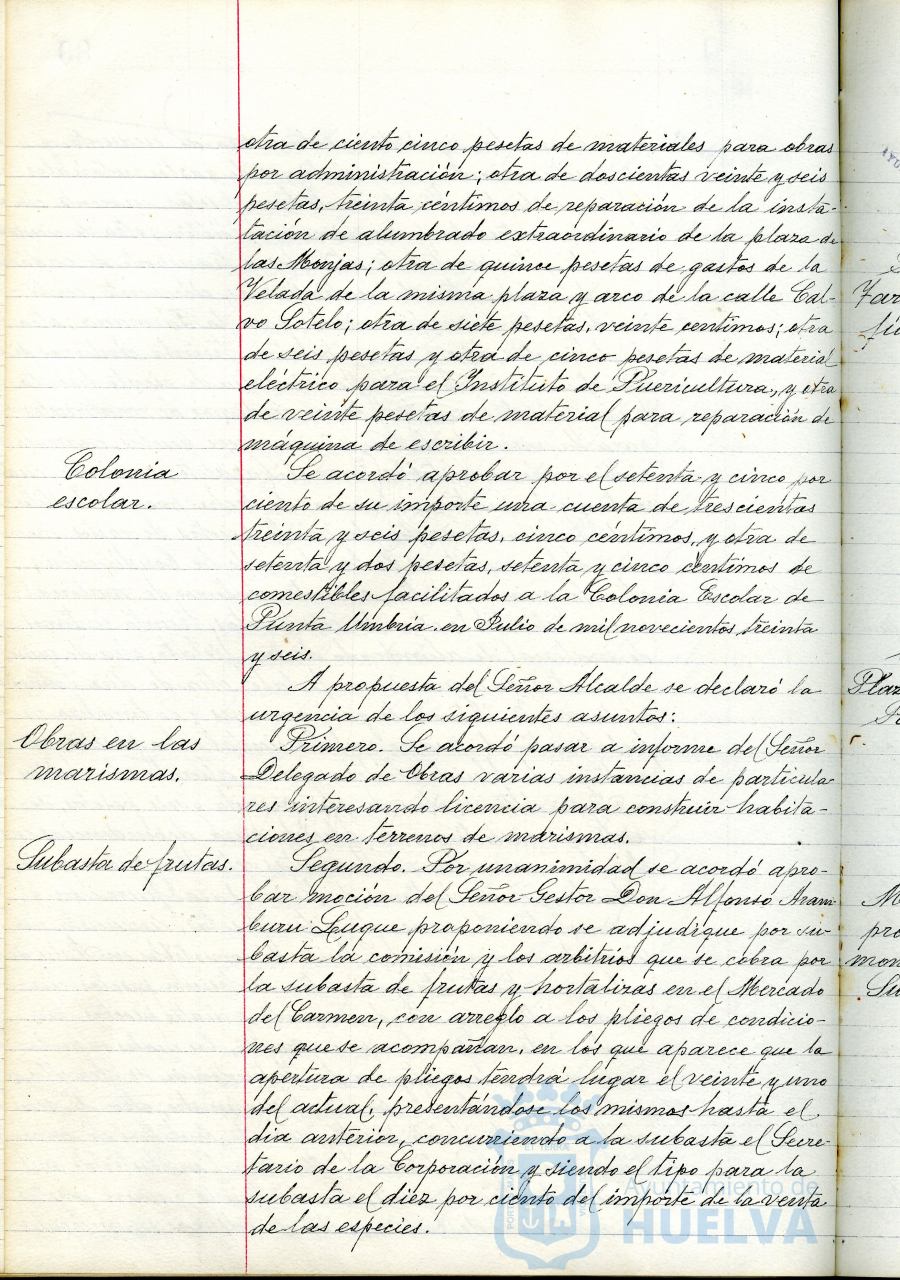 otra de ciento cinco pesetas de materiales para obras
por administración; otra de doscientas veinte y seis
pesetas, treinta céntimos de reparación de la insta-
tación de alumbrado extraordinario de la plaza de
las Monjas; otra de quince pesetas de gastos de la
Velada de la misma plaza y arco de la calle Cal-
vo Sotelo; otra de siete pesetas, veinte centimos; otra
de seis pesetas y otra de cinco pesetas de material
eléctrico para el Instituto de Puericultura, y otra
de veinte pesetas de material para reparación de
máquina de escribir.
Colonia
escolar.
Se acordó aprobar por el setenta y cinco por
ciento de su importe una cuenta de trescientas
treinta y seis pesetas, cinco céntimos, y otra de
setenta y dos pesetas, setenta y cinco céntimos de
comestibles facilitados a la Colonia Escolar de
Punta Umbria en Julio de mil novecientos treinta
y seis.
A propuesta del Señor Alcalde se declaró la
urgencia de los siguientes asuntos:
Obras en las
marismas.
Primero. Se acordó pasar a informe del Señor
Delegado de Obras varias instancias de particula-
res interesando licencia para construir habita-
ciones en terrenos de marismas.
Subasta de frutas.
Segundo. Por unanimidad se acordó apro-
bar moción del Señor Gestor Don Alfonso Aram-
buru Luque proponiendo se adjudique por su-
basta la comisión y los arbitrios que se cobra por
la subasta de frutas y hortalizas en el Mercado
del Carmen, con arreglo a los pliegos de condicio-
nes que se acompañan, en los que aparece que la
apertura de pliegos tendrá lugar el veinte y uno
del actual, presentándose los mismos hasta el
dia anterior, concurriendo a la subasta el Secre-
tario de la Corporación y siendo el tipo para la
subasta el diez por ciento del importe de la venta
de las especies.
Ayuntamiento de
HUELVA